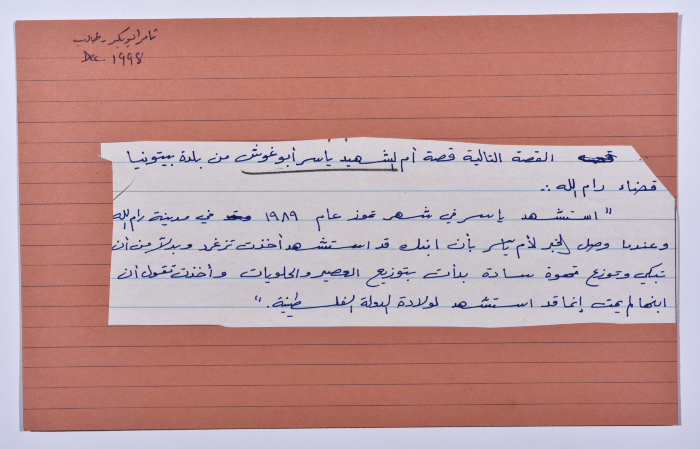 ثامر ابو بكر - طالب
Dec. 1998
القصة التالية قصة أم الشهيد ياسر أبو غوش من بلدة بيتونيا
قضاء رام الله :.
" استشهد ياسر في شهر تموز عام ١٩٨٩ في مدينة رام الله
وعندما وصول الخبر لأم ياسر بأن ابنك قد استشهد أخذت تزغرد وبدلاً من أن
تبكي وتوزع قهوة سادة بدأت بتوزيع العصير والحلويات وأخذت تقول أن
ابنها لم يمت إنما قد استشهد لولادة الدولة الفلسطينية . "